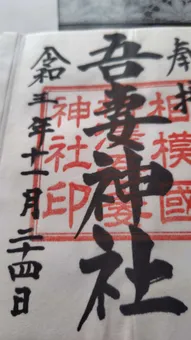 奉拝
吾妻神社
相模國
吾妻
神社印
令和三年十一月二十四日